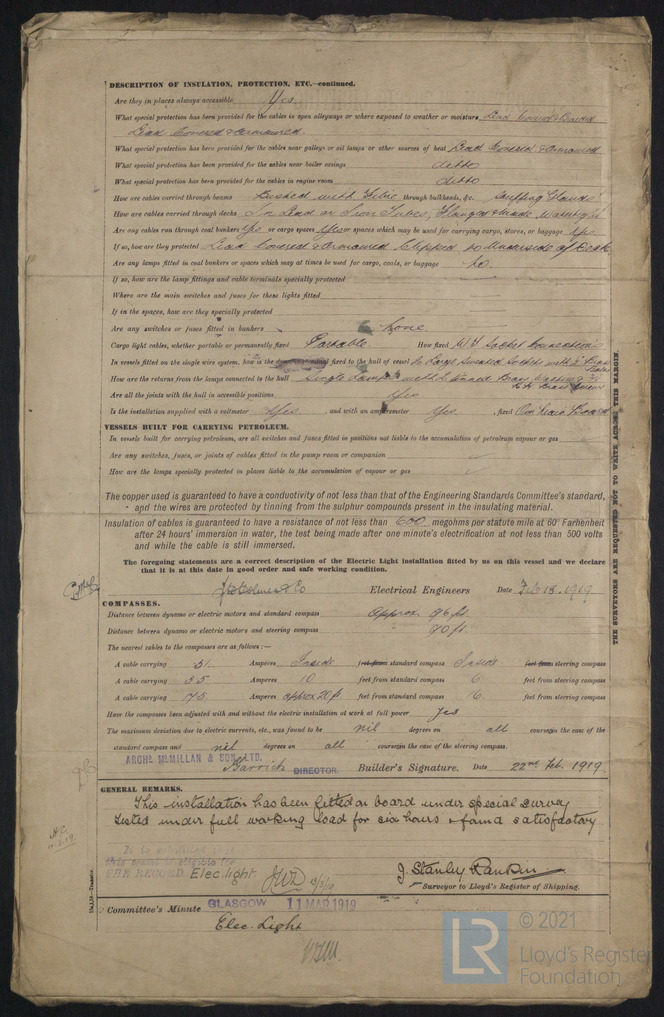 DESCRIPTION OF INSULATION, PROTECTION, ETC.—continued.
Are they in places always accessible Yes
What special protection has been provided for the cables in open alleyways or where exposed to weather or moisture Lead Covered & Braided
Lead Covered & Armoured
What special protection has been provided for the cables near galleys or oil lamps or other sources of heat Lead Covered & Armoured
What special protection has been provided for the cables near boiler casings ditto
What special protection has been provided for the cables in engine room ditto
How are cables carried through beams Bushed with Fibre through bulkheads, &c. Stuffing Glands
How are cables carried through decks In Lead or Iron Tubes, Flanged & made Watertight
Are any cables run through coal bunkers Yes or cargo spaces Yes or spaces which may be used for carrying cargo, stores, or baggage Yes
If so, how are they protected Lead Covered & Armoured Clipped to Underside of Deck
Are any lamps fitted in coal bunkers or spaces which may at times be used for cargo, coals, or baggage No
If so, how are the lamp fittings and cable terminals specially protected
Where are the main switches and fuses for these lights fitted
If in the spaces, how are they specially protected
Are any switches or fuses fitted in bunkers None
Cargo light cables, whether portable or permanently fixed Portable How fixed W.T. Socket Connections
In vessels fitted on the single wire system, how is the fixed to the hull of vessel to Large Sweated Sockets with
How are the returns from the lamps connected to the hull Single Lamps with Tinned Brass
Are all the joints with the hull in accessible positions Yes
Is the installation supplied with a voltmeter Yes, and with an amperemeter Yes, fixed On Main Board
VESSELS BUILT FOR CARRYING PETROLEUM.
In vessels built for carrying petroleum, are all switches and fuses fitted in positions not liable to the accumulation of petroleum vapour or gas
Are any switches, fuses, or joints of cables fitted in the pump room or companion
How are the lamps specially protected in places liable to the accumulation of vapour or gas
The copper used is guaranteed to have a conductivity of not less than that of the Engineering Standards Committee's standard,
and the wires are protected by tinning from the sulphur compounds present in the insulating material.
Insulation of cables is guaranteed to have a resistance of not less than 600 megohms per statute mile at 60° Farhenheit
after 24 hours' immersion in water, the test being made after one minute's electrification at not less than 500 volts
and while the cable is still immersed.
The foregoing statements are a correct description of the Electric Light installation fitted by us on this vessel and we declare
that it is at this date in good order and safe working condition.
J H Holmes & Co Electrical Engineers Date Feb 18. 1919
COMPASSES.
Distance between dynamo or electric motors and standard compass Approx 96 ft
Distance between dynamo or electric motors and steering compass 90 ft
The nearest cables to the compasses are as follows:—
A cable carrying .51 Amperes Inside feet from standard compass Inside feet from steering compass
A cable carrying 3.5 Amperes 10 feet from standard compass 6 feet from steering compass
A cable carrying 17.5 Amperes approx 20 ft feet from standard compass 16 feet from steering compass
Have the compasses been adjusted with and without the electric installation at work at full power Yes
The maximum deviation due to electric currents, etc., was found to be nil degrees on all courses in the case of the
standard compass and nil degrees on all courses in the case of the steering compass.
ARCHD. McMILLAN & SON, LTD.
DIRECTOR. Builder's Signature. Date 22nd Feb. 1919.
GENERAL REMARKS.
This installation has been fitted on board under special survey
tested under full working load for six hours & found satisfactory
It is submitted that
this vessel is eligible for
THE RECORD Elec. light. JWD 13/3/19
J. Stanley Rankin
Surveyor to Lloyd's Register of Shipping.
Committee's Minute GLASGOW 11 MAR 1919
Elec. Light
THE SURVEYORS ARE REQUESTED NOT TO WRITE ACROSS THIS MARGIN.
© 2021
LR
Lloyd's Register
Foundation